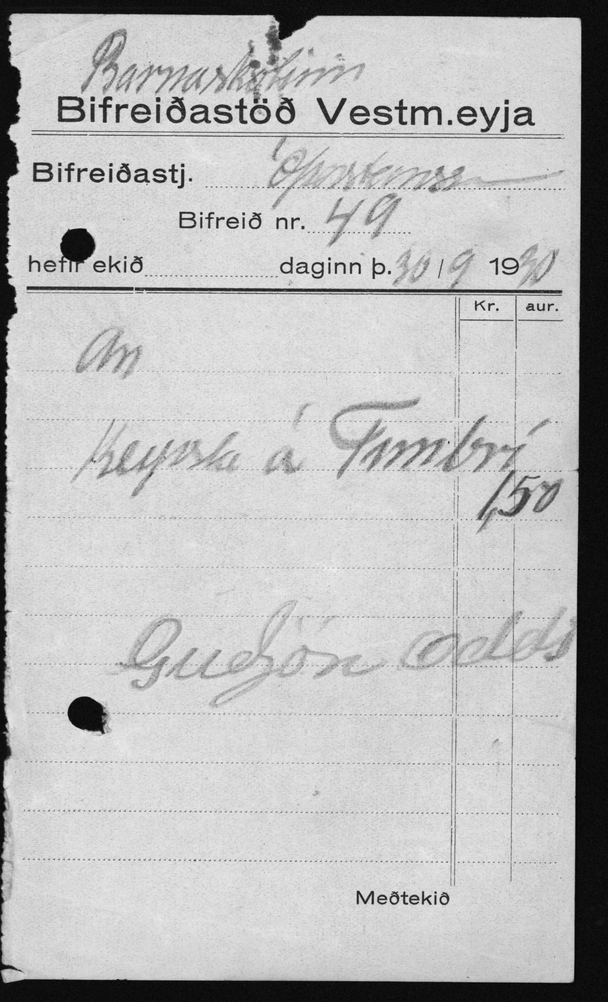 Barnaskólinn
Bifreiðastöð Vestm.eyja
Bifreiðastj.
Bifreið nr. 49
hefir ekið daginn þ. 30/9 1930
Kr. aur.
Keyrsla á Timbri
1,50
Guðjón Odds
Meðtekið